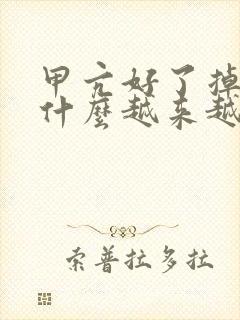 甲亢好了掉
什麼越来越
索普拉多拉